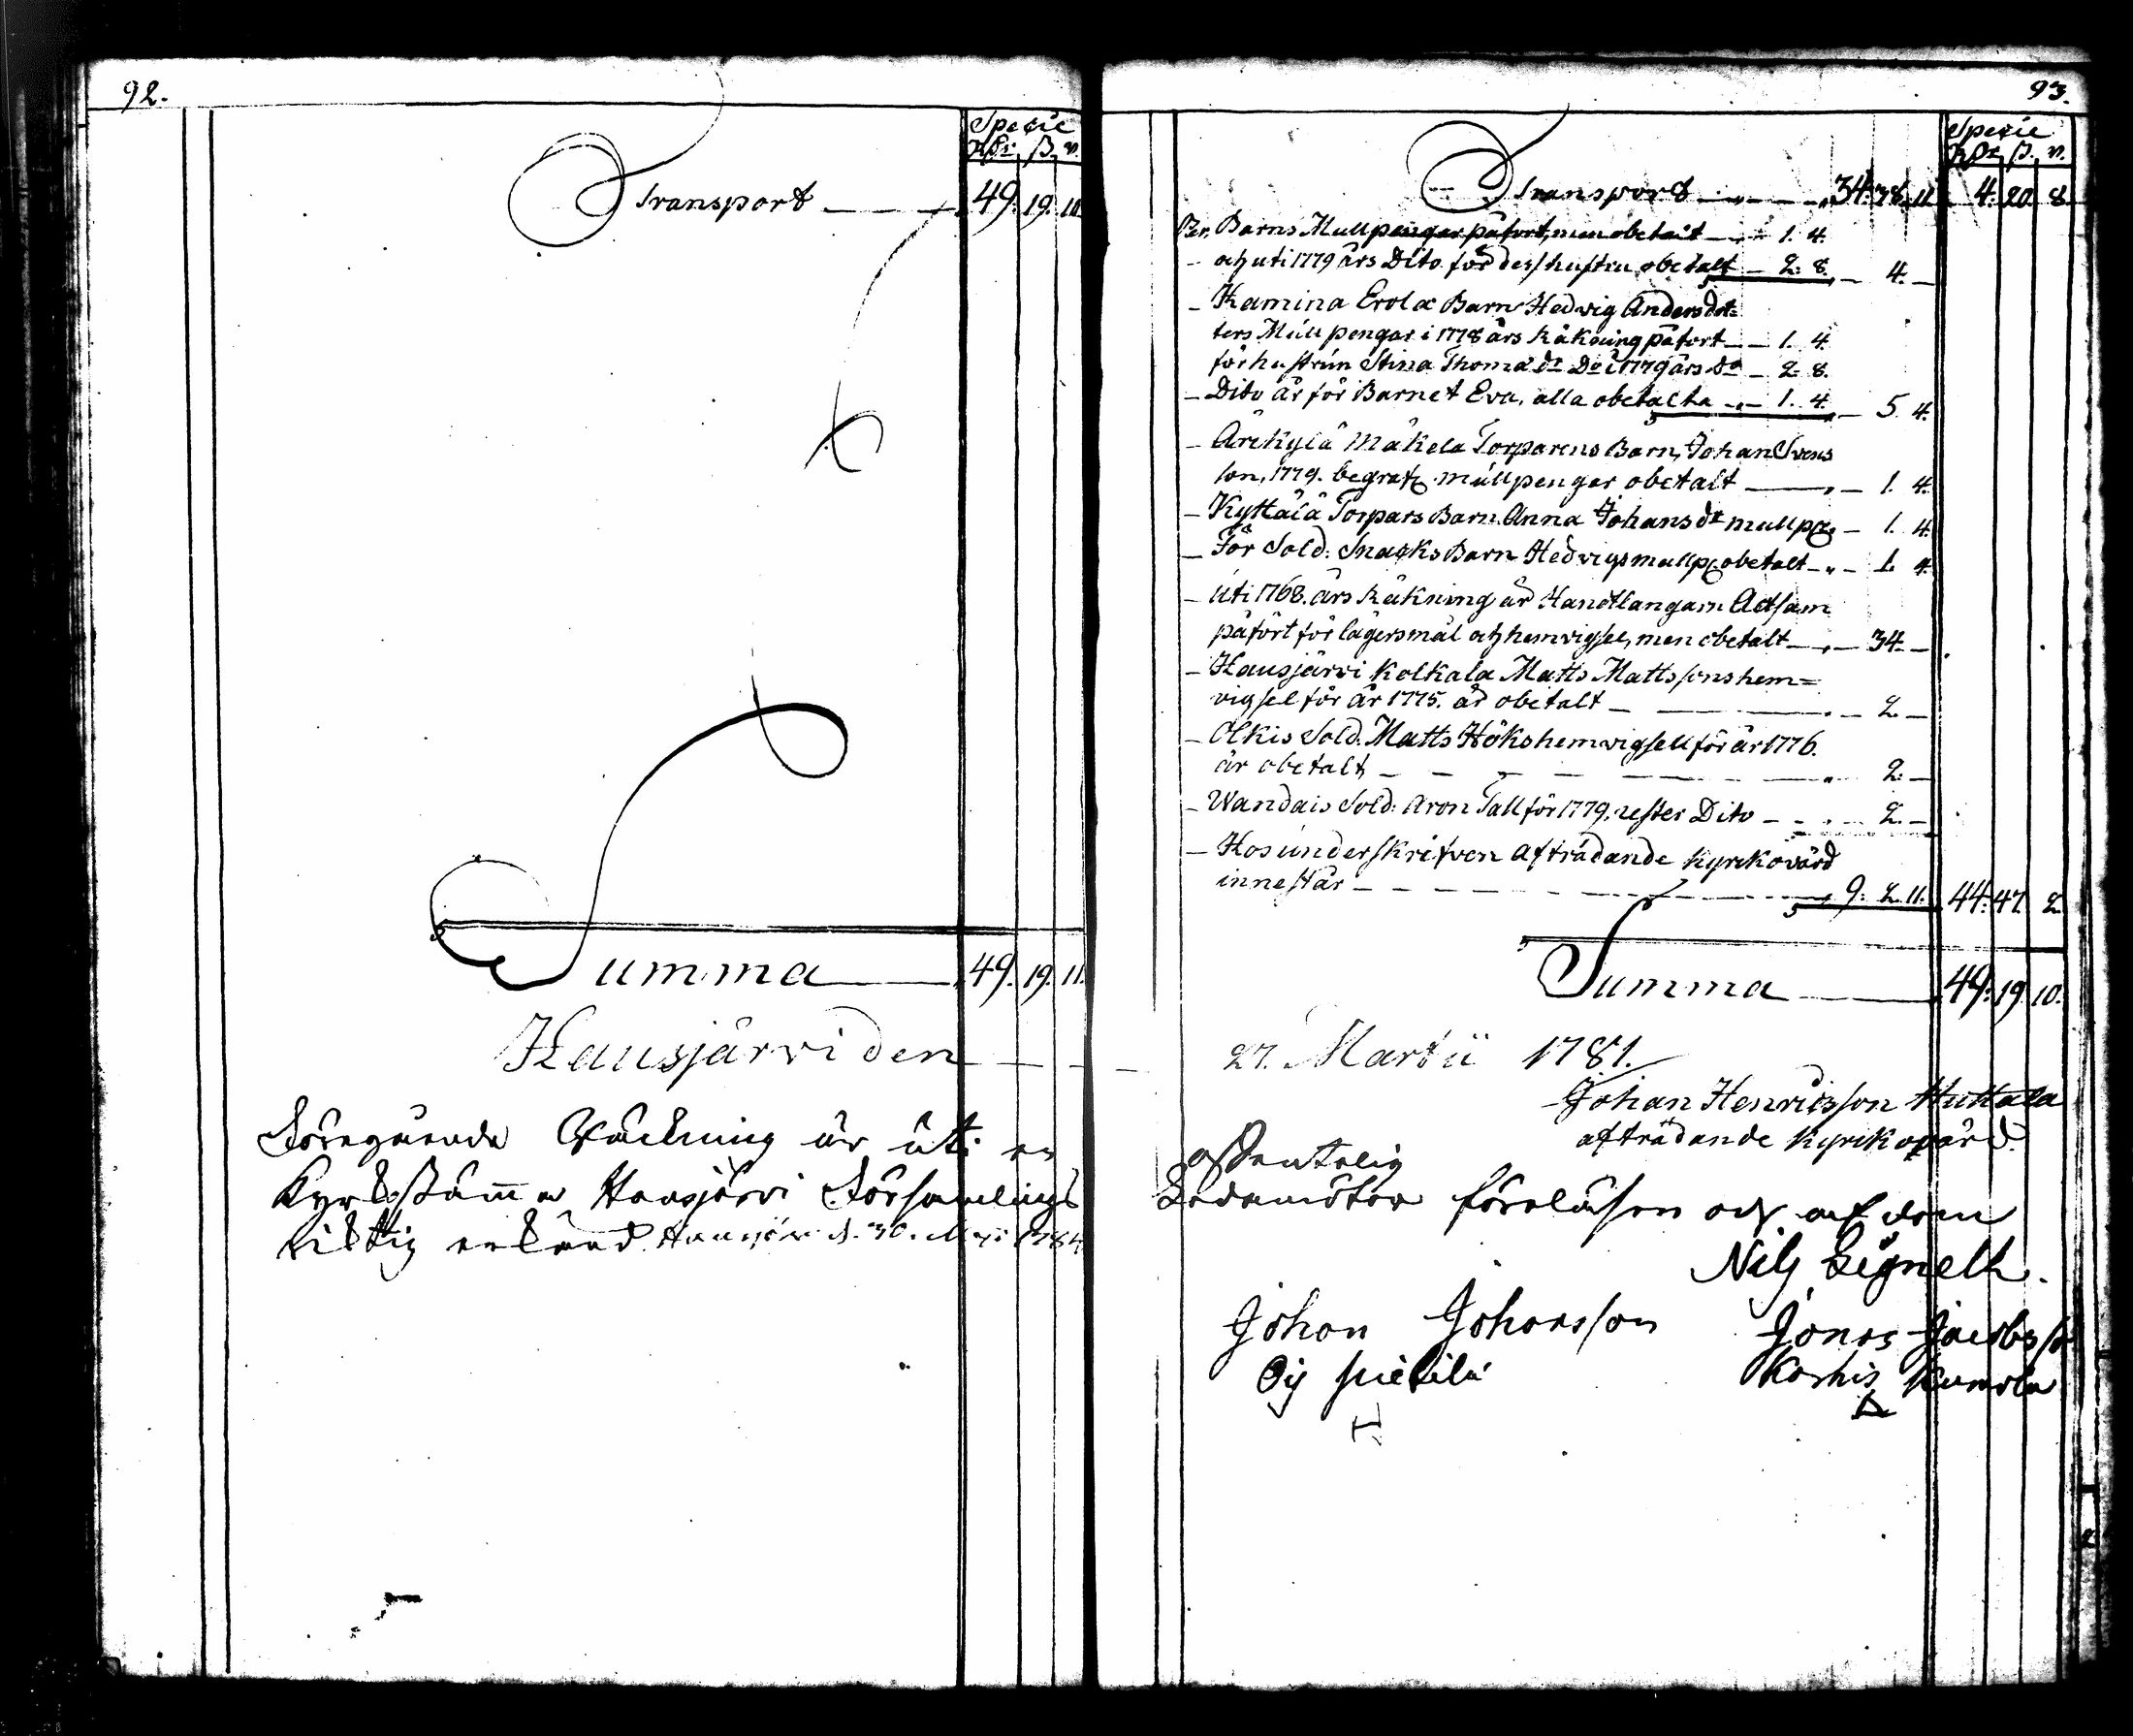 92.
Specie
Rdr ß. r.
Transport 49. 19. 11.
Summa 49. 19. 11.
Hausjärvi den
Föregående Räkning är uti en
Kyrkostämma Hausjärvi Församlings
riktig erkänd Hausjärvi d. 30. Maji
93.
Specie
Rdr ß. r.
Transport 34. 38. 11 4. 20. 8
Per. Barns Mullpengar påfört, men obetalt 1. 4.
och uti 1779 års Dito för dess hustru obetalt 2. 8. 4.
Kamina Erola Barn Hedwig Andersdot=
ters Mullpengar i 1778 års Räkning påfört 1. 4.
för hustrun Stina Thomædr Do i 1779 års do 2. 8.
Dito är för Barnet Eva, alla obetalta 1. 4. 5. 4.
Årekylä Mäkelä Torparens Barn, Johan Svens
son, 1779. begrafn. mullpengar obetalt 1. 4.
Kyttälä Torpars Barn Anna Johansdr mullpr 1. 4.
För Sold: Snacks Barn Hedvigs mullp obetalt 1. 4.
Uti 1768. års Räkning är Handtlangarn Adsam
påfört för lägersmål och hemvigsel, men obetalt 34.
Hausjärvi Kolkala Matts Mattssons hem=
vigsel för år 1775. är obetalt 2.
Olkis Sold. Matts Höks hemvigsell för år 1776.
är obetalt 2.
Wandais Sold: Aron Tall för 1779, rester Dito 2.
Hos underskrifven afträdande Kyrkovärd
innestår 9. 2. 11. 44. 47. 2
Summa 49. 19. 10.
27. Martii 1781.
Johan Henricsson Huttala
afträdande Kyrkovärd.
offentelig
Ledamöter föreläsen och af dem
Nils Lignell.
Johan Johansson Jonas Jacobss
Oij pietilä Karhis Kumola